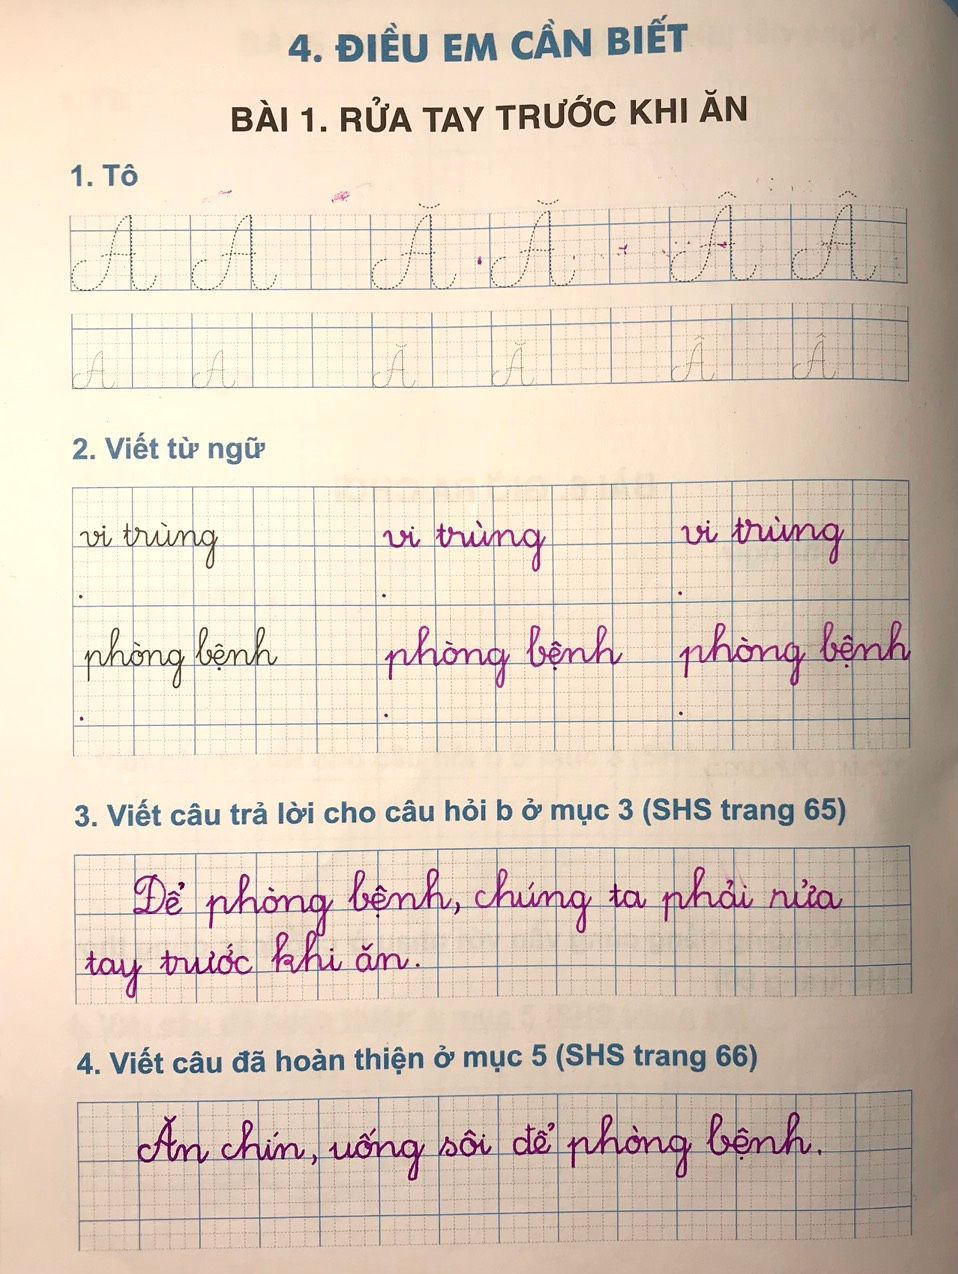 4. ĐIỀU EM CẦN BIẾT
BÀI 1. RỬA TAY TRƯỚC KHI ĂN
1. Tô
A A Ă Ă Â Â
A A Ă Ă Â Â
2. Viết từ ngữ
vi trùng vi trùng vi trùng
phòng bệnh phòng bệnh phòng bệnh
3. Viết câu trả lời cho câu hỏi b ở mục 3 (SHS trang 65)
Để phòng bệnh, chúng ta phải rửa
tay trước khi ăn.
4. Viết câu đã hoàn thiện ở mục 5 (SHS trang 66)
Ăn chín, uống sôi để phòng bệnh.